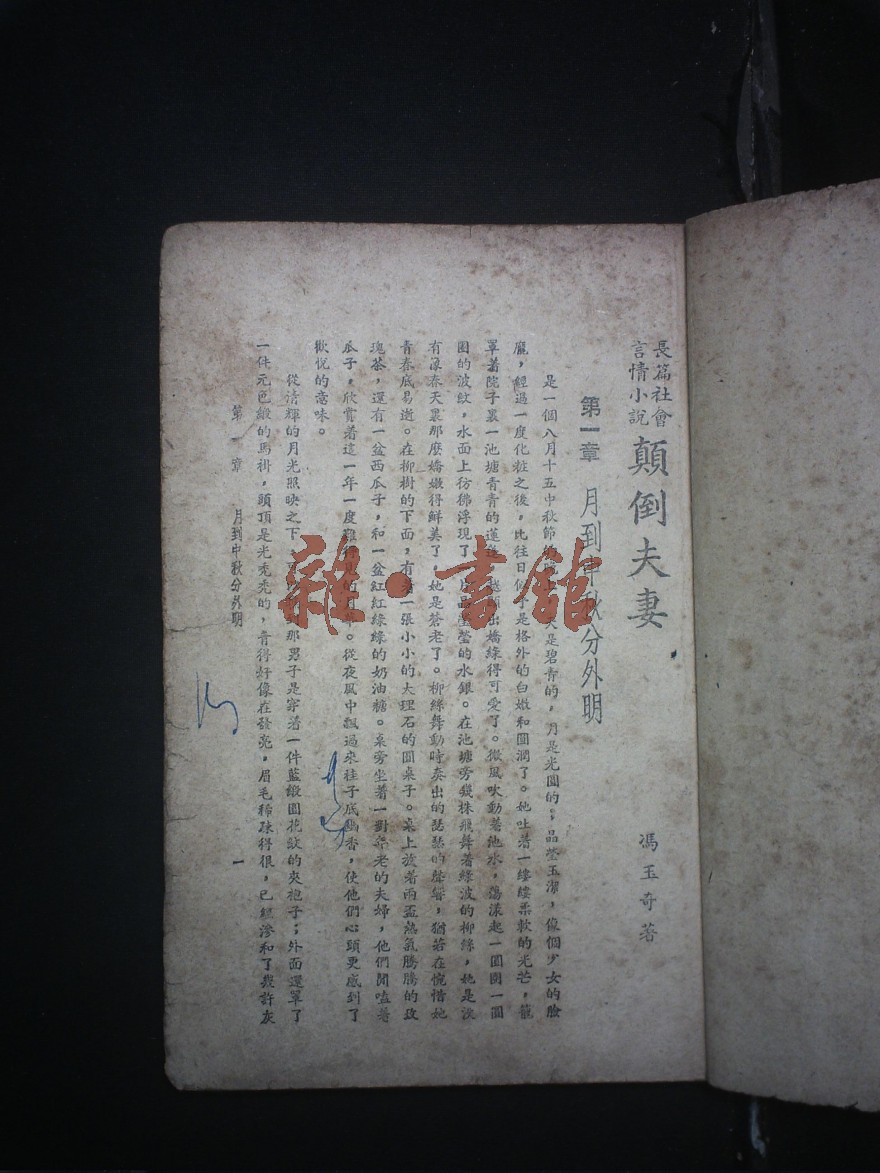 長篇社會
言情小說
顛倒夫妻
馮玉奇著
第一章 月到中秋分外明
是一個八月十五中秋節 是碧青的，月是光圓的；晶瑩玉潔，像個少女的臉
龐，經過一度化粧之後，比往日似乎是格外的白嫩和圓潤了。她吐着一縷縷柔軟的光芒，籠
罩着院子裏一池塘青青的蓮 越顯出嬌綠得可愛了。微風吹動着池水，蕩漾起一圓圈一圓
圈的波紋，水面上彷彿浮現了 晶瑩瑩的水銀。在池塘旁幾株飛舞着綠波的柳絲，她是沒
有像春天裏那麼嬌嫩得鮮美了，她是蒼老了。柳絲舞動時奏出的瑟瑟的聲響，猶若在惋惜她
青春底易逝。在柳樹的下面，有着一張小小的大理石的圓桌子。桌上放着兩盃熱氣騰騰的玫
瑰茶，還有一盆西瓜子，和一盆紅紅綠綠的奶油糖。桌旁坐着一對年老的夫婦，他們閒嗑着
瓜子，欣賞着這一年一度難 的 。從夜風中飄過來桂子底幽香，使他們心頭更感到了
歡悅的意味。
從清輝的月光照映之下， 那男子是穿着一件藍緞圓花紋的夾袍子；外面還罩了
一件元色緞的馬褂，頭頂是光禿禿的，青得好像在發亮，眉毛稀疎得很，已經滲和了幾許灰
第一章 月到中秋分外明
一
雜·書館